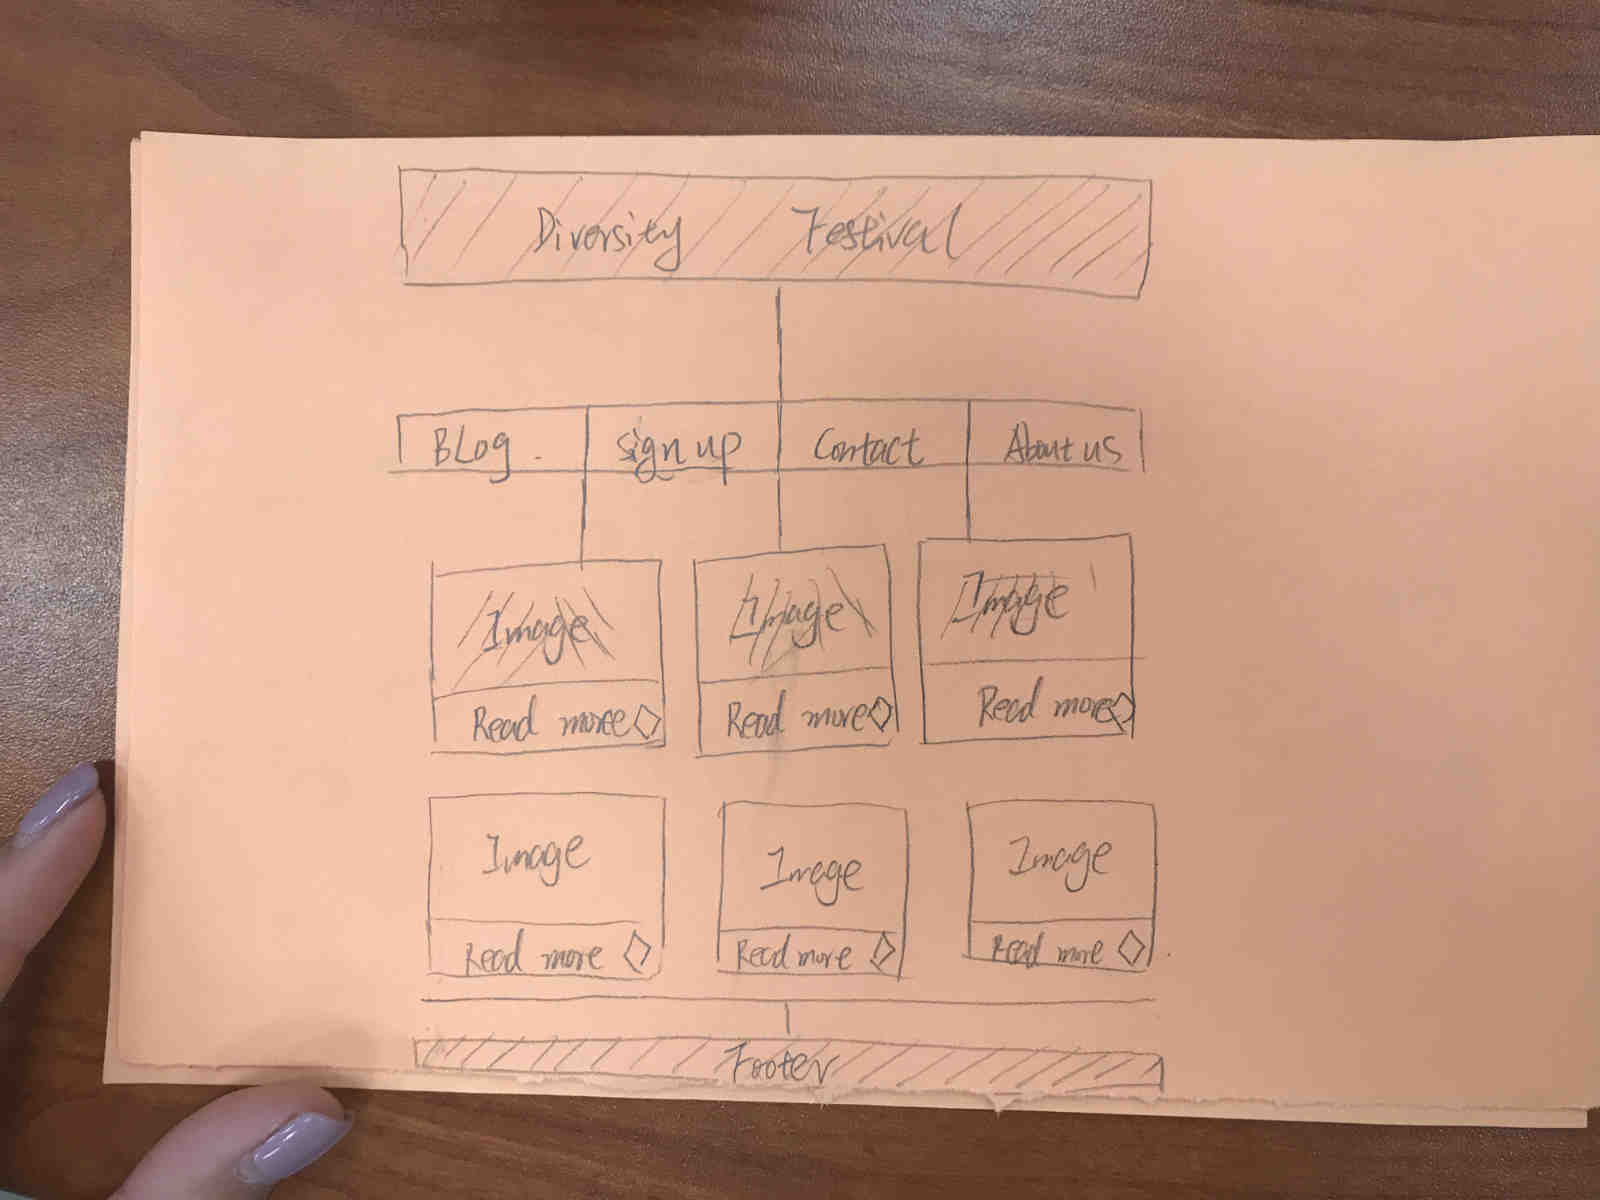 Diversity Festival
Blog. Sign up Contact About us
Image Image Image
Read more Read more Read more
Image Image Image
Read more Read more Read more
Footer